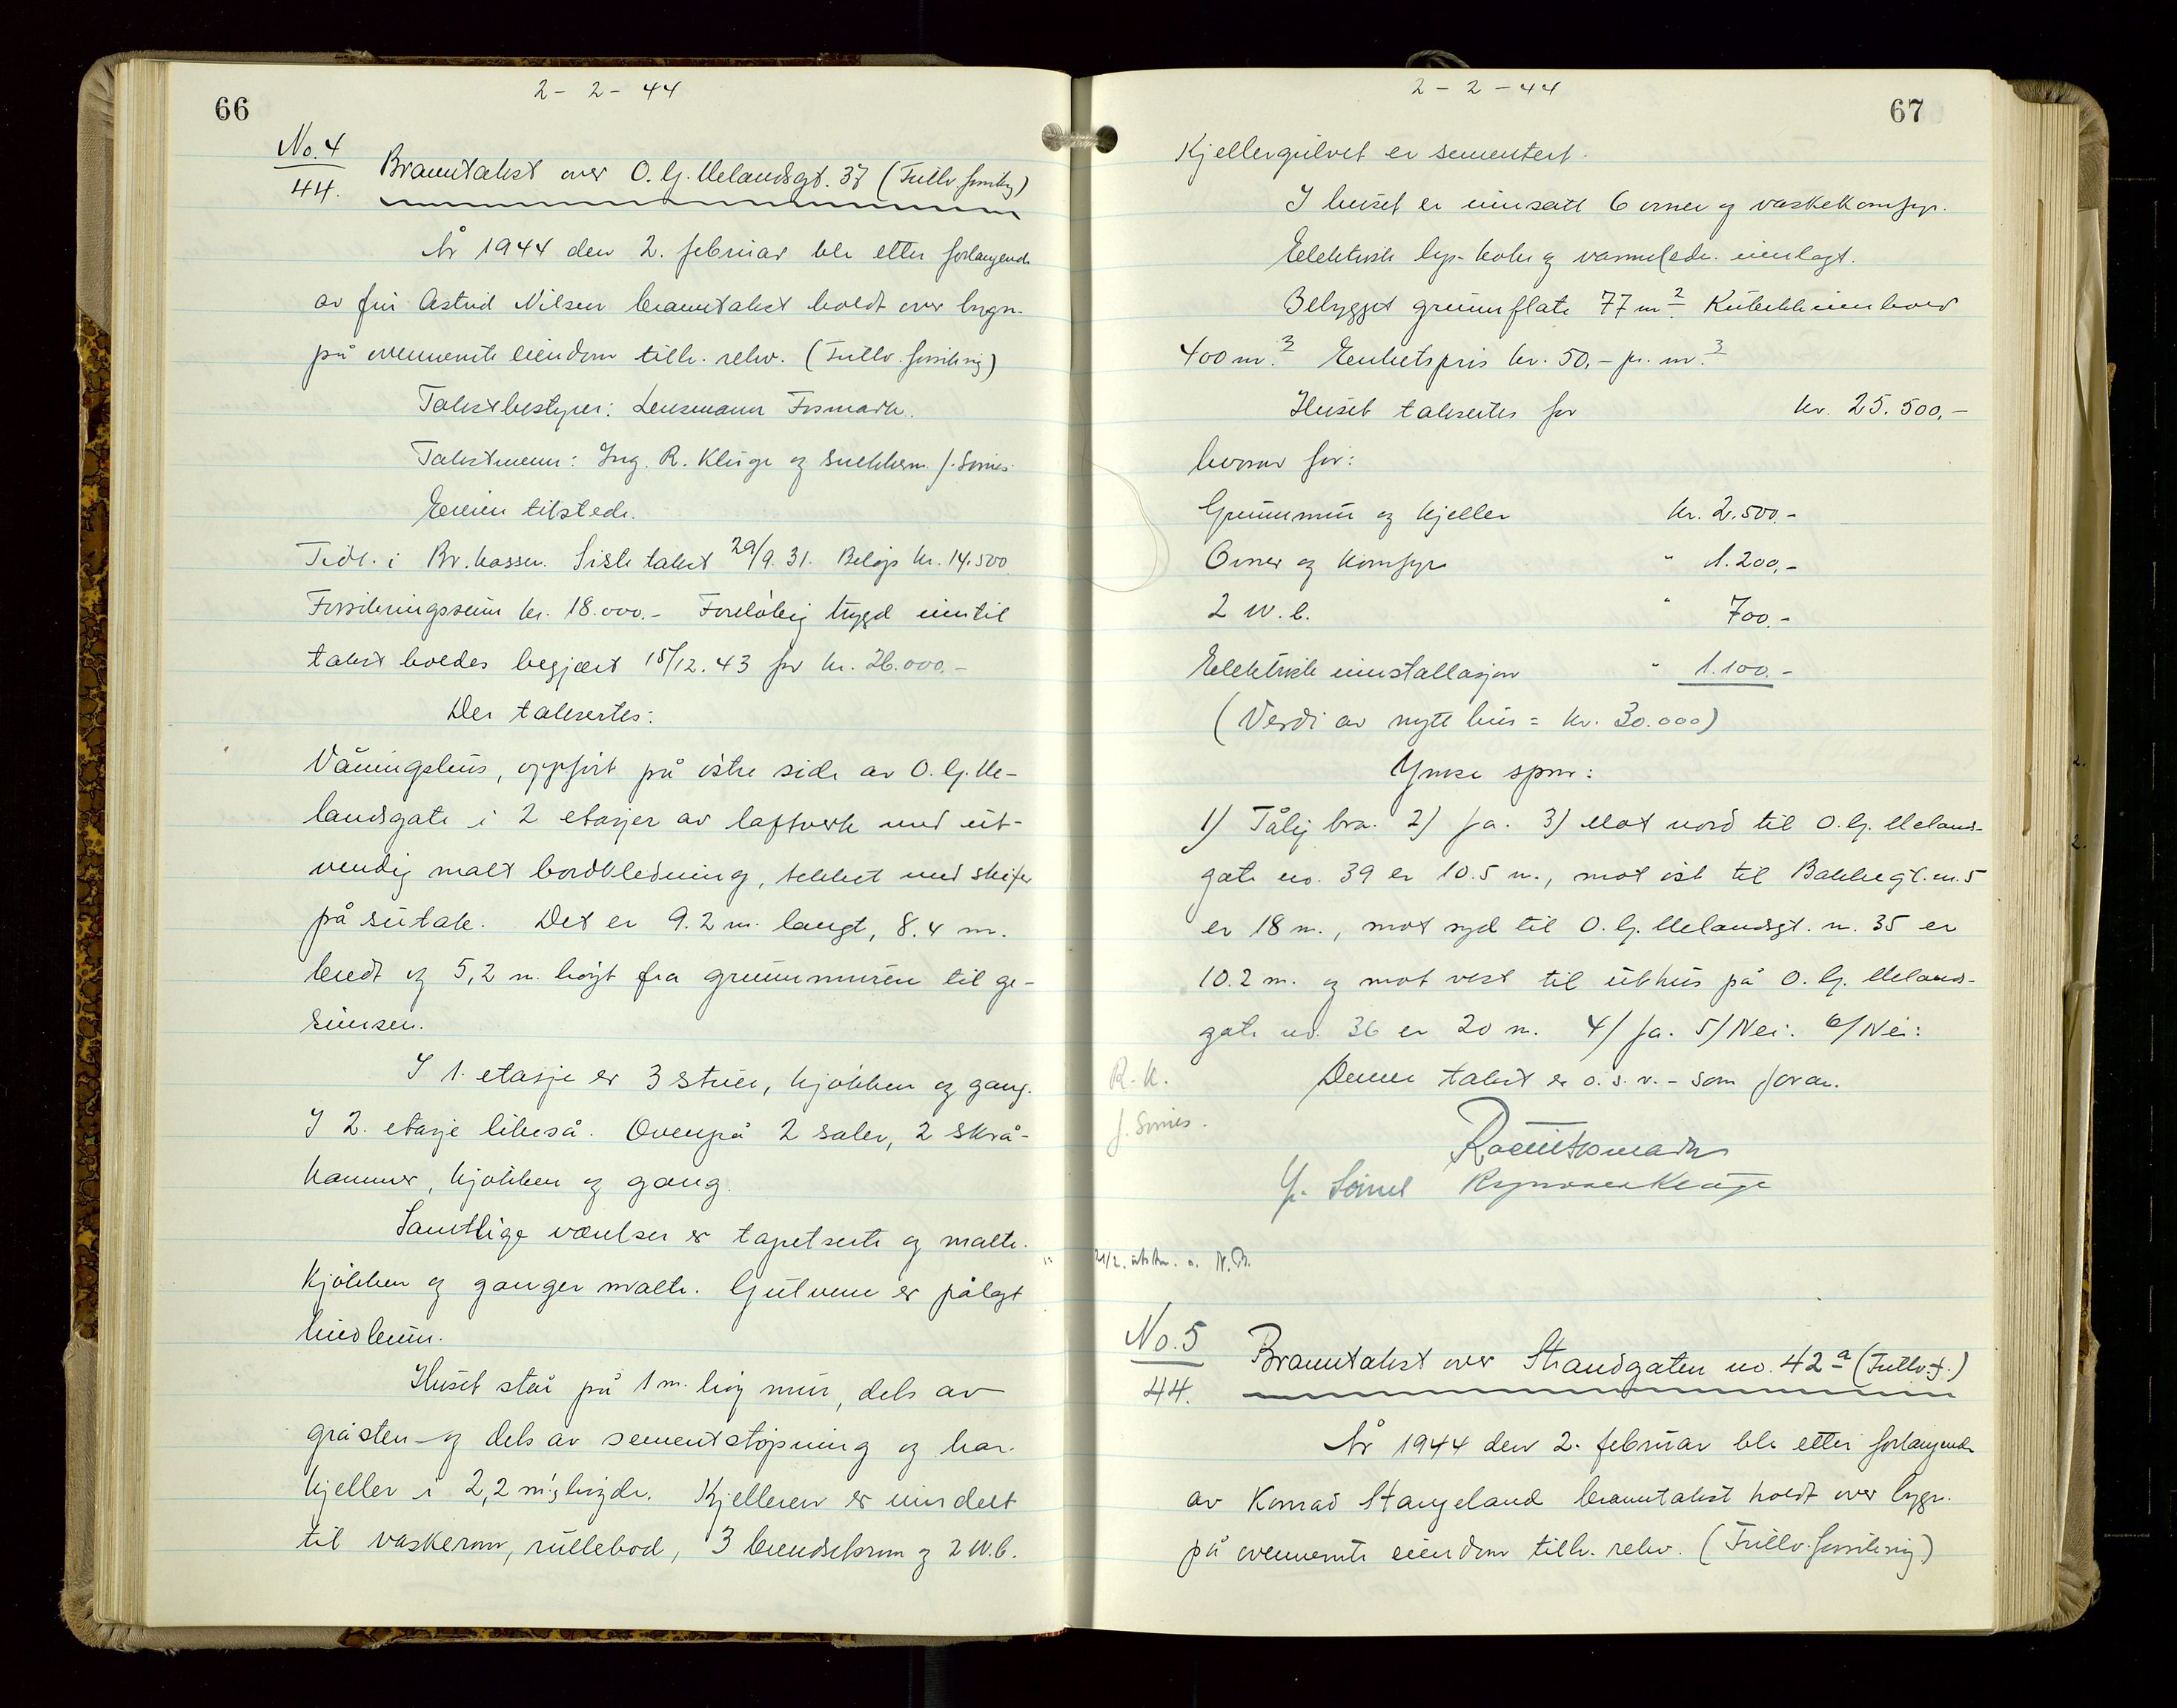 66
2 - 2 - 44
No. 4
44.
Branntakst over O. G. Melandsgt. 37 (Fullv. forsikrg)
År 1944 den 2. februar ble etter forlangende
av fru Astrid Nilsen branntakst holdt over bygn.
på ovennemte eiendom tilh. rekv. (Fullv. forsikring)
Takstbestyrer: Lensmann Fosmark.
Takstmenn: Ing. R. Kluge og snekkerm. J. Sørnes.
Eieren tilstede.
Tidl. i Br. kassen. Siste takst 29/9. 31. Beløp kr. 14.500
Forsikringssum kr. 18.000.- Foreløbig trygd inntil
takst holdes begjært 15/12. 43 for kr. 26.000.-
Der takseertes:
Våningshus, oppført på østre side av O. G. Me-
landsgate i 2 etasjer av laftverk med ut-
vendig malt bordkledning, tekket med skifer
på sutak. Det er 9.2 m. langt, 8.4 m.
bredt og 5,2 m. høyt fra grunnmuren til ge-
simsen.
I 1. etasje er 3 stuer, kjøkken og gang.
I 2. etasje likeså. Ovenpå 2 saler, 2 skrå-
kammer, kjøkken og gang.
Samtlige værelser er tapetserte og malte.
Kjøkken og ganger malte. Gulvene er pålagt
linoleum.
Huset står på 1 m. høg mur, dels av
gråsten og dels av sementstøpning og har
kjeller i 2,2 m's høyde. Kjelleren er inndelt
til vaskerom, rullebod, 3 brendselsrom og 2 W.C.
67
2 - 2 - 44
Kjellergulvet er sementert.
I huset er innsatt 6 ovner og vaskekomfyr.
Elektrisk lys- koke og varmeledn. innlagt.
Bebygget grunnflate 77 m². Kubikkinnhold
400 m.³ Enhetspris kr. 50,- pr. m.³
Huset takseertes for kr. 25.500,-
hvorav for:
Grunnmur og kjeller kr. 2.500.-
Ovner og komfyr " 1.200,-
2 W.C. " 700.-
Elektrisk innstallasjon " 1.100.-
(Verdi av nytt hus = kr. 30.000)
Ymse spm:
1) Tålig bra. 2) Ja. 3) Mot nord til O. G. Melands-
gate no. 39 er 10.5 m., mot øst til Bakkegt. nr. 5
er 18 m., mot syd til O. G. Melandsgt. nr. 35 er
10.2 m. og mot vest til uthus på O. G. Melands-
gate no. 36 er 20 m. 4/ Ja. 5/ Nei. 6/ Nei:
R. K.
Denne takst er o. s. v. - som foran.
J. Sørnes.
J. Sørnes
21/2. utskr.
No. 5
44.
Branntakst over Strandgaten no. 42 a (Fullv. f.)
År 1944 den 2. februar ble etter forlangende
av Konrad Stangeland branntakst holdt over bygn.
på ovennemte eiendom tilh. rekv. (Fullv. forsikring)